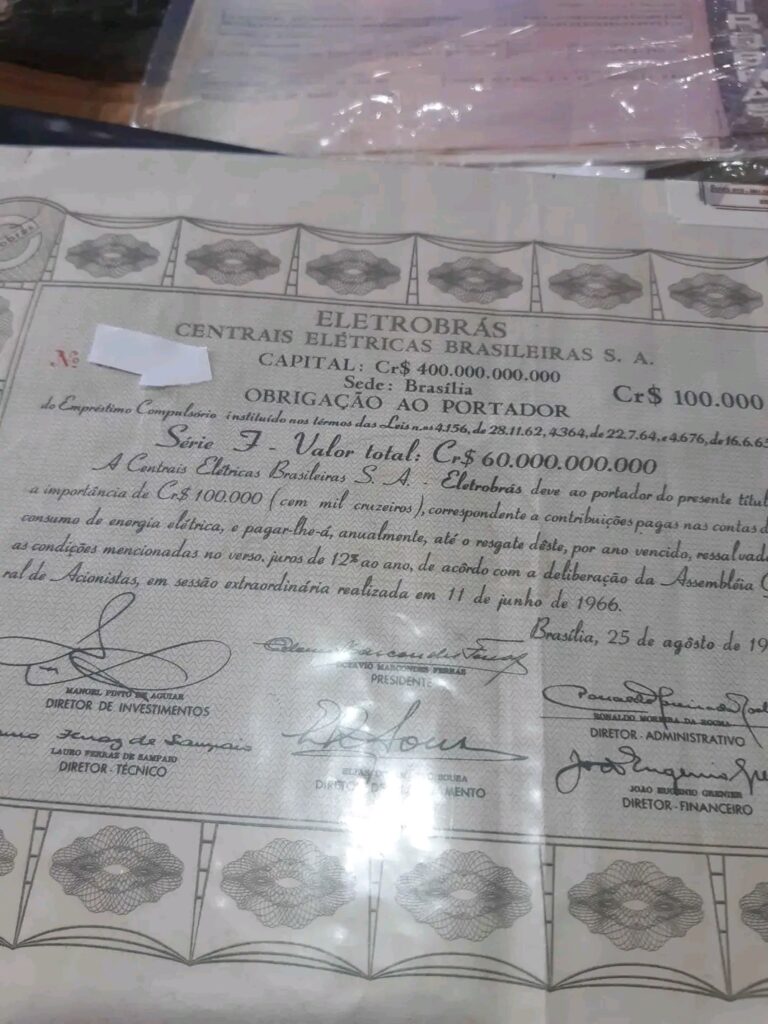 ELETROBRÁS
CENTRAIS ELÉTRICAS BRASILEIRAS S. A.
Nº
CAPITAL: Cr$ 400.000.000.000
Sede: Brasília
Cr$ 100.000
OBRIGAÇÃO AO PORTADOR
do Empréstimo Compulsório instituído nos têrmos das Leis n.os 4.156, de 28.11.62, 4.364, de 22.7.64, e 4.676, de 16.6.65
Série F - Valor total: Cr$ 60.000.000.000
A Centrais Elétricas Brasileiras S. A. - Eletrobrás deve ao portador do presente títul
a importância de Cr$ 100.000 (cem mil cruzeiros), correspondente a contribuições pagas nas contas d
consumo de energia elétrica, e pagar-lhe-á, anualmente, até o resgate dêste, por ano vencido, ressalvad
as condições mencionadas no verso, juros de 12% ao ano, de acôrdo com a deliberação da Assembléia
ral de Acionistas, em sessão extraordinária realizada em 11 de junho de 1966.
Brasília, 25 de agôsto de 19
MANOEL PINTO DE AGUIAR
DIRETOR DE INVESTIMENTOS
OCTAVIO MARCONDES FERRAZ
PRESIDENTE
RONALDO MOREIRA DA ROCHA
DIRETOR-ADMINISTRATIVO
LAURO FERRAZ DE SAMPAIO
DIRETOR-TÉCNICO
SOUZA
JOÃO EUGENIO GRENIER
DIRETOR-FINANCEIRO